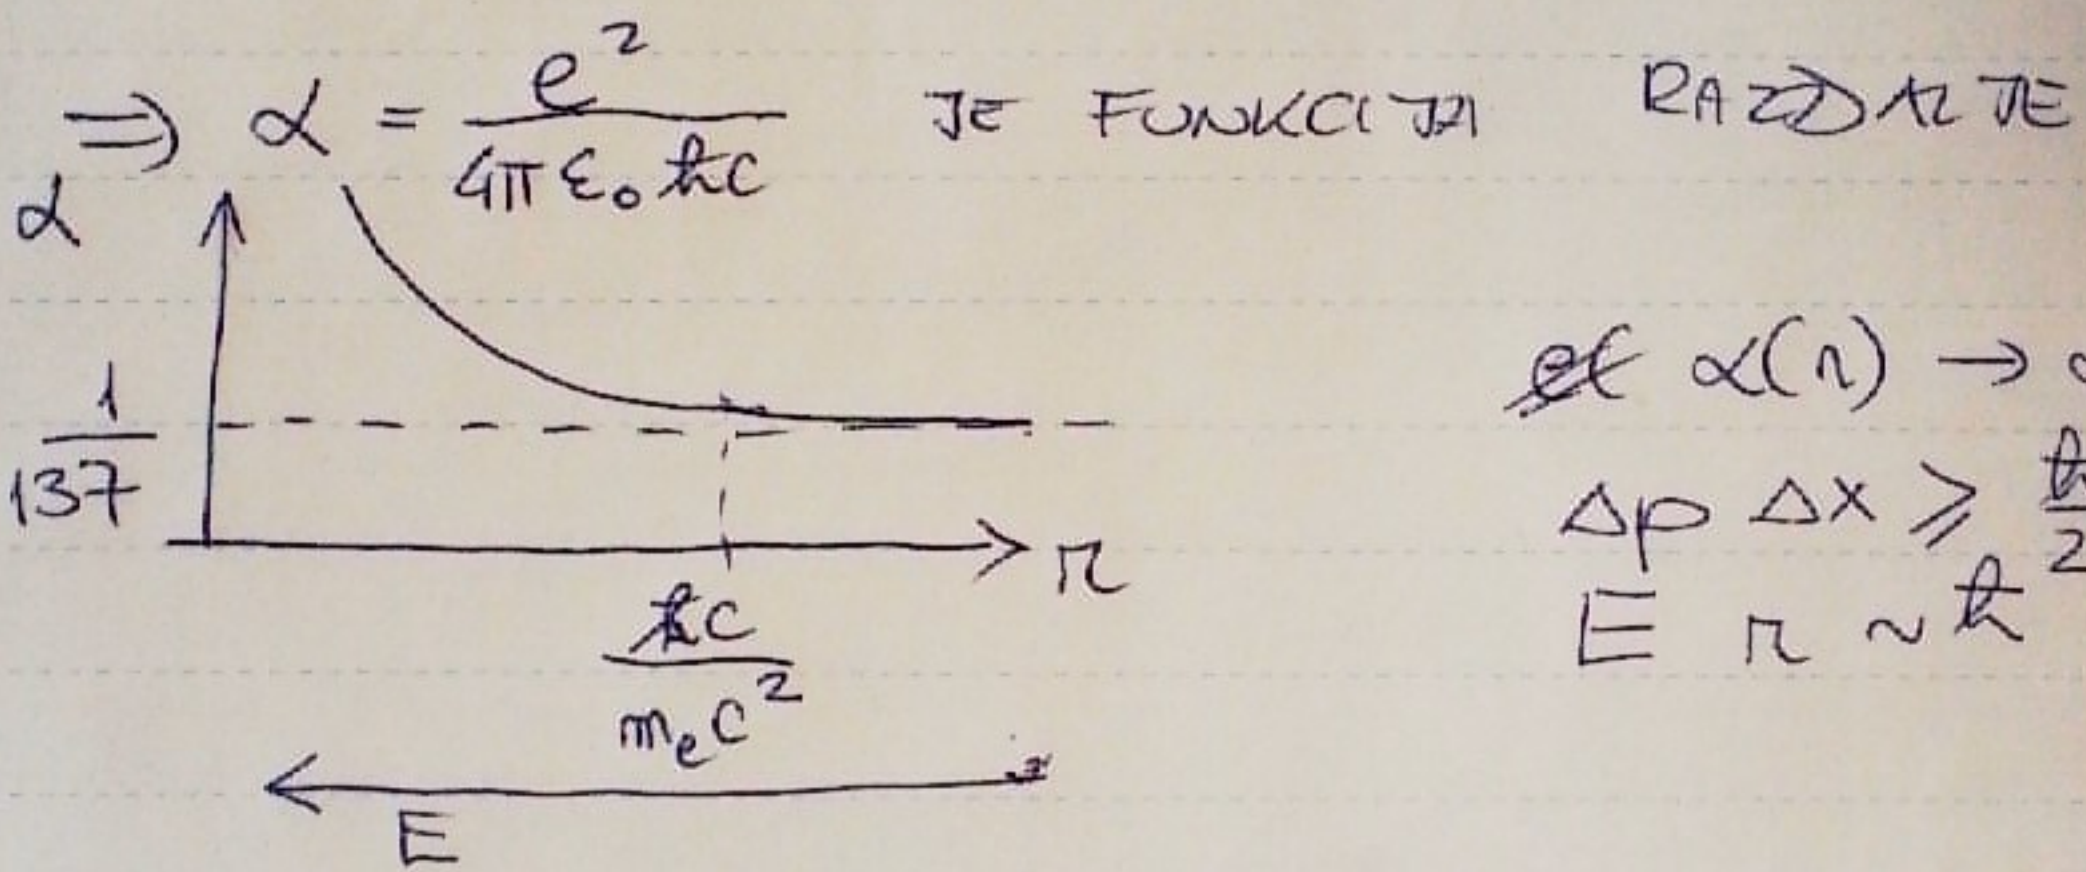 ⇒ α = e² / 4πε₀ħc JE FUNKCIJA RAZDALJE
α
1/137
r
ħc / mₑc²
E
α(r) →
Δp Δx ⩾ ħ/2
E r ~ ħ